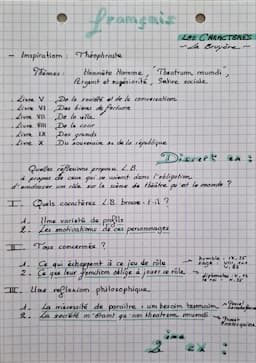 français
LES CARACTÈRES
- La Bruyère -
- Inspiration : Théophraste
Thèmes : Honnête Homme, "Theatrum mundi",
Argent et supériorité, Satire sociale
. Livre V , De la société et de la conversation
. Livre VI , Des biens de fortune
. Livre VII , De la ville
. Livre VIII , De la cour
. Livre IX , Des grands
. Livre X , Du souverain ou de la république
Dissert ex :
Quelles réflexions propose L.B.
à propos de ceux qui se voient dans l'obligation
d'endosser un rôle sur la scène de théâtre qu'est le monde ?
I. Quels caractères L.B. trouve-t-il ?
1. Une variété de profils
2. Les motivations de ces personnages
II. Tous concernés ?
1. Ce qui échappent à ce jeu de rôle
2. Ce que leur fonction oblige à jouer ce rôle
III. Une réflexion philosophique
1. La nécessité de paraître : un besoin humain
2. La société n'étant qu'un theatrum mundi
2 ème ex :